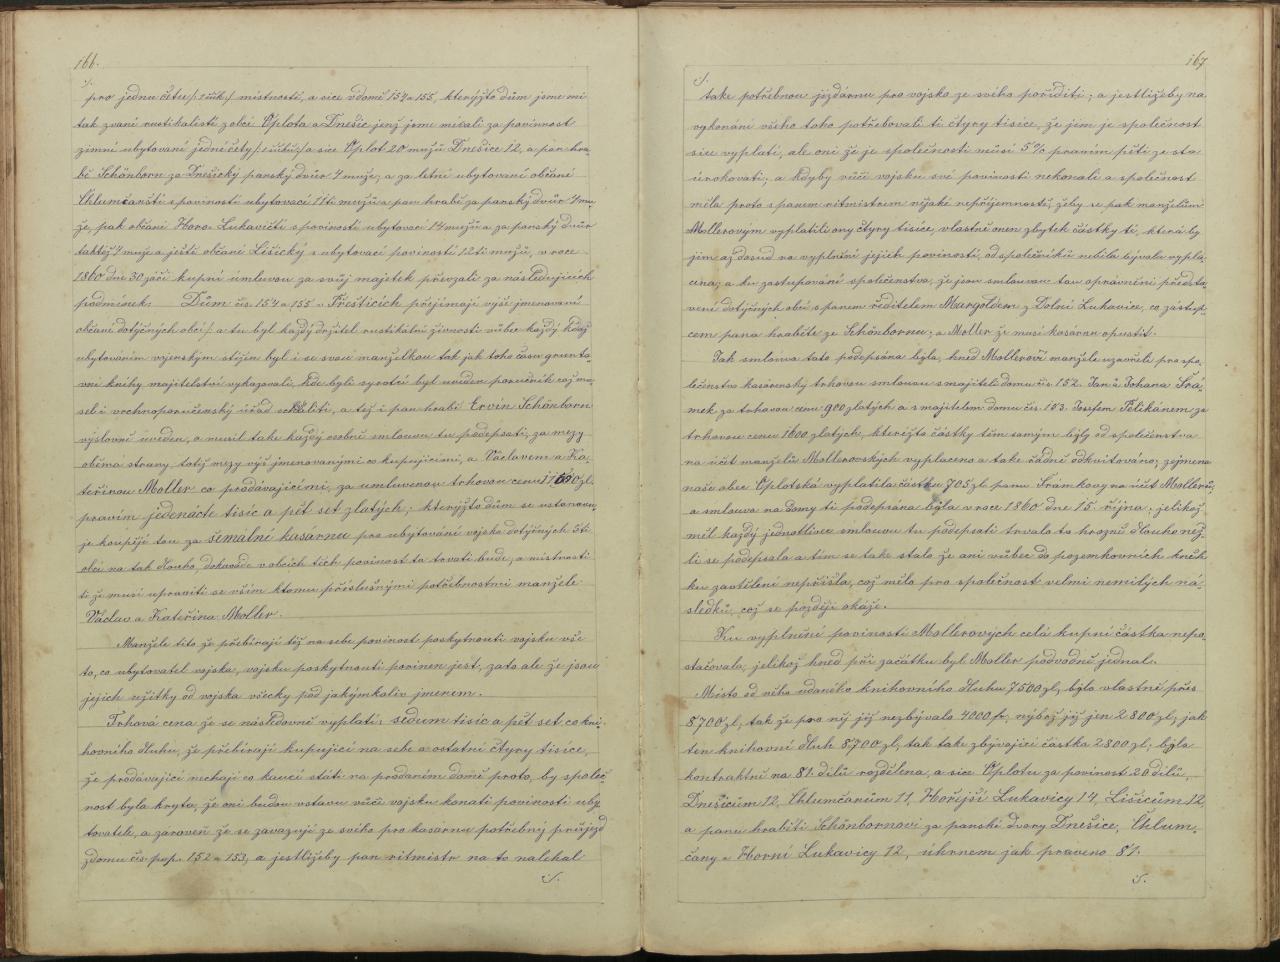 166.
·/.
pro jednu četu /: zŭk :/ místností, a sice v domě 154 a 155, kterýžto dům jsme mi
tak zvaní rustikalisté z obcí Oplota a Dnešic jenž jsme mívali za povinnost
zimní ubytovaní jedné čety /: :/ a sice Oplot 20 mužů Dnešice 12, a pan hra-
bě Schönborn za Dnešický panský dvůr 4 muže, a za letní ubytovaní občané
Chlumčanští s povinností ubytovací 11ti mužů a pan hrabě za panský dvůr 4 mu-
že, pak občané Horo. Lukavičtí s povinností ubytovací 14 mužů a za panský dvůr
taktéž 4 muže a ještě občané Lišický s ubytovací povinností 12ti mužů, v roce
1860 dne 30 září kupní úmluvou za svůj majetek převzali za následujících
podmínek: Dům čís 154 a 155 v Přešticích přejímají výše jmenovaní
občané dotýčných obcí / a tu byl každý držitel rustikální živnosti vůbec každý kdož
ubytováním vojenským stížen byl i se svou manželkou tak jak toho času grunto
vní knihy majitelství vykazovali, kde byli syrotci byl uveden poručník což mu-
sel i vrchnoporučenský úřad schváliti, a též i pan hrabě Ervín Schönborn
výslovně uveden, a musil take každý osobně smlouvu tu podepsati, za mezy
oběma strany, totiž mezy výš jmenovanými co kupujícími, a Václavem a Ka-
teřinou Moller co prodávajícími, za umluvenou trhovou cenu 11500 zl.
pravím jedenácte tisíc a pět set zlatých; kterýžto dům se ustanovu-
je koupějí tou za semalní kasárnu pro ubytování vojska dotýčných 5ti
obcí na tak dlouho, dokavade v obcích těch povinost ta trvati bude, a místnosti
ti že musí upraviti se vším ktomu příslušnými potřebnostmi manželé
Václav a Kateřina Moller.
Manželé tito že přebírají též na sebe povinost poskytnouti vojsku vše
to, co ubytovatel vojska, vojsku poskytnouti povinen jest, zato ale že jsou
jejich užitky od vojska všecky pod jakýmkoliv jmenem.
Trhová cena že se následovně vyplatí: sedum tisíc a pět set, co kni-
hovního dluhu, že přebírají kupující na sebe a ostatní čtyry tisíce,
že prodávající nechají co kauci státi na prodaném domě proto, by společ
nost byla kryta, že oni budou vstavu vůči vojsku konati povinosti uby
tovatele, a zároveň že se zavazují ze svého pro kasárnu potřebný příjezd
z domu čís pop. 152 a 153, a jestližeby pan ritmistr na to naléhal
·/.
167
·/.
take potřebnou jízdárnu pro vojsko ze svého poříditi; a jestližeby na
vykonání všeho toho potřebovali ti čtyry tisíce, že jim je společnost
sice vyplatí, ale oni že je společnosti musí 5% pravím pěti ze sta
úrokovati; a kdyby vůči vojsku své povinosti nekonali a společnost
měla proto s panem ritmistrem nějaké nepříjemnosti, žeby se pak manželům
Mollerovým vyplatili ony čtyry tisíce, vlastně onen zbytek částky té, která by
jim až dosud na vyplnění jejich povinosti, od společníků nebila bývala vypla-
cena; a ku zastupování společenstva, že jsou smlouvou tou oprávněni předsta-
vené dotýčných obcí s panem ředitelem Margoldem z Dolní Lukavice, co zástup-
cem pana hraběte ze Schönbornu; a Moller že musí kasárnu opustit.
Jak smlouva tato podepsána byla, hned Mollerovi manželé uzavřeli pro spo-
lečenstvo kasárenský trhovou smlouvu s majiteli domu čís. 152. Jan a Johana Šrá-
mek za trhovou cenu 900 zlatých a s majitelem domu čís. 153. Josefem Pelikánem za
trhovou cenu 1600 zlatých, kterížto částky těm samým býly od společenstva
na účet manželů Mollerovských vyplaceno a take řádně odkvitováno; zejmena
naše obec Oplotská vyplatila částku 705 zl panu Šrámkovy na účet Mollerů;
a smlouva na domy ti podepsána býla v roce 1860 dne 15. října; jelikož
měl každý jednotlivec smlouvu tu podepsati trvalo to hrozně dlouho než-
li se podepsala a tím se take stalo že ani vůbec do pozemkovních kněh
ku zavtělení nepříšla, což mělo pro společnost velmi nemilých ná-
sledků, což se později okáže.
Ku vyplnění povinosti Mollerových celá kupní částka nepo-
stačovala, jelikož hned při začátku byl Moller podvodně jednal.
Místo od něho udaného knihovního dluhu 7500 zl, bylo vlastně přes
8700 zl, tak že pro něj již nezbývalo 4000 fr, nýbrž již jen 2800 zl; jak
ten knihovní dluh 8700 zl, tak take zbývající částka 2800 zl, býla
kontraktně na 81 dílů rozdělena, a sice Oplotu za povinost 20 dílů,
Dnešicům 12, Chlumčanům 11, Hořejší Lukavicy 14, Lišicům 12,
a panu hraběti Schönbornovi za panské dvory Dnešice, Chlum-
čany a Horní Lukavicy 12, úhrnem jak praveno 81.
·/.